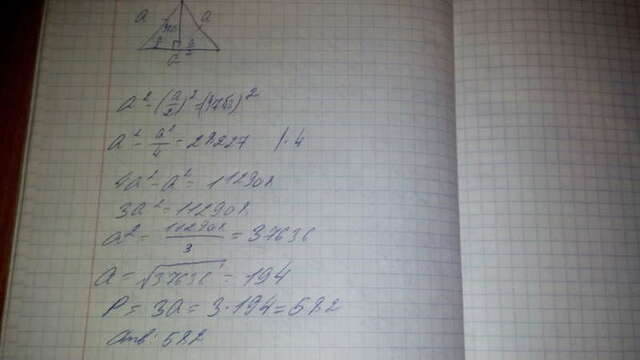 a a
a/2 a/2
a
a² - (a/2)² = (97√3)²
a² - a²/4 = 28227 |·4
4a² - a² = 112908
3a² = 112908
a² = 112908/3 = 37636
a = √37636 = 194
P = 3a = 3·194 = 582
Отв: 582